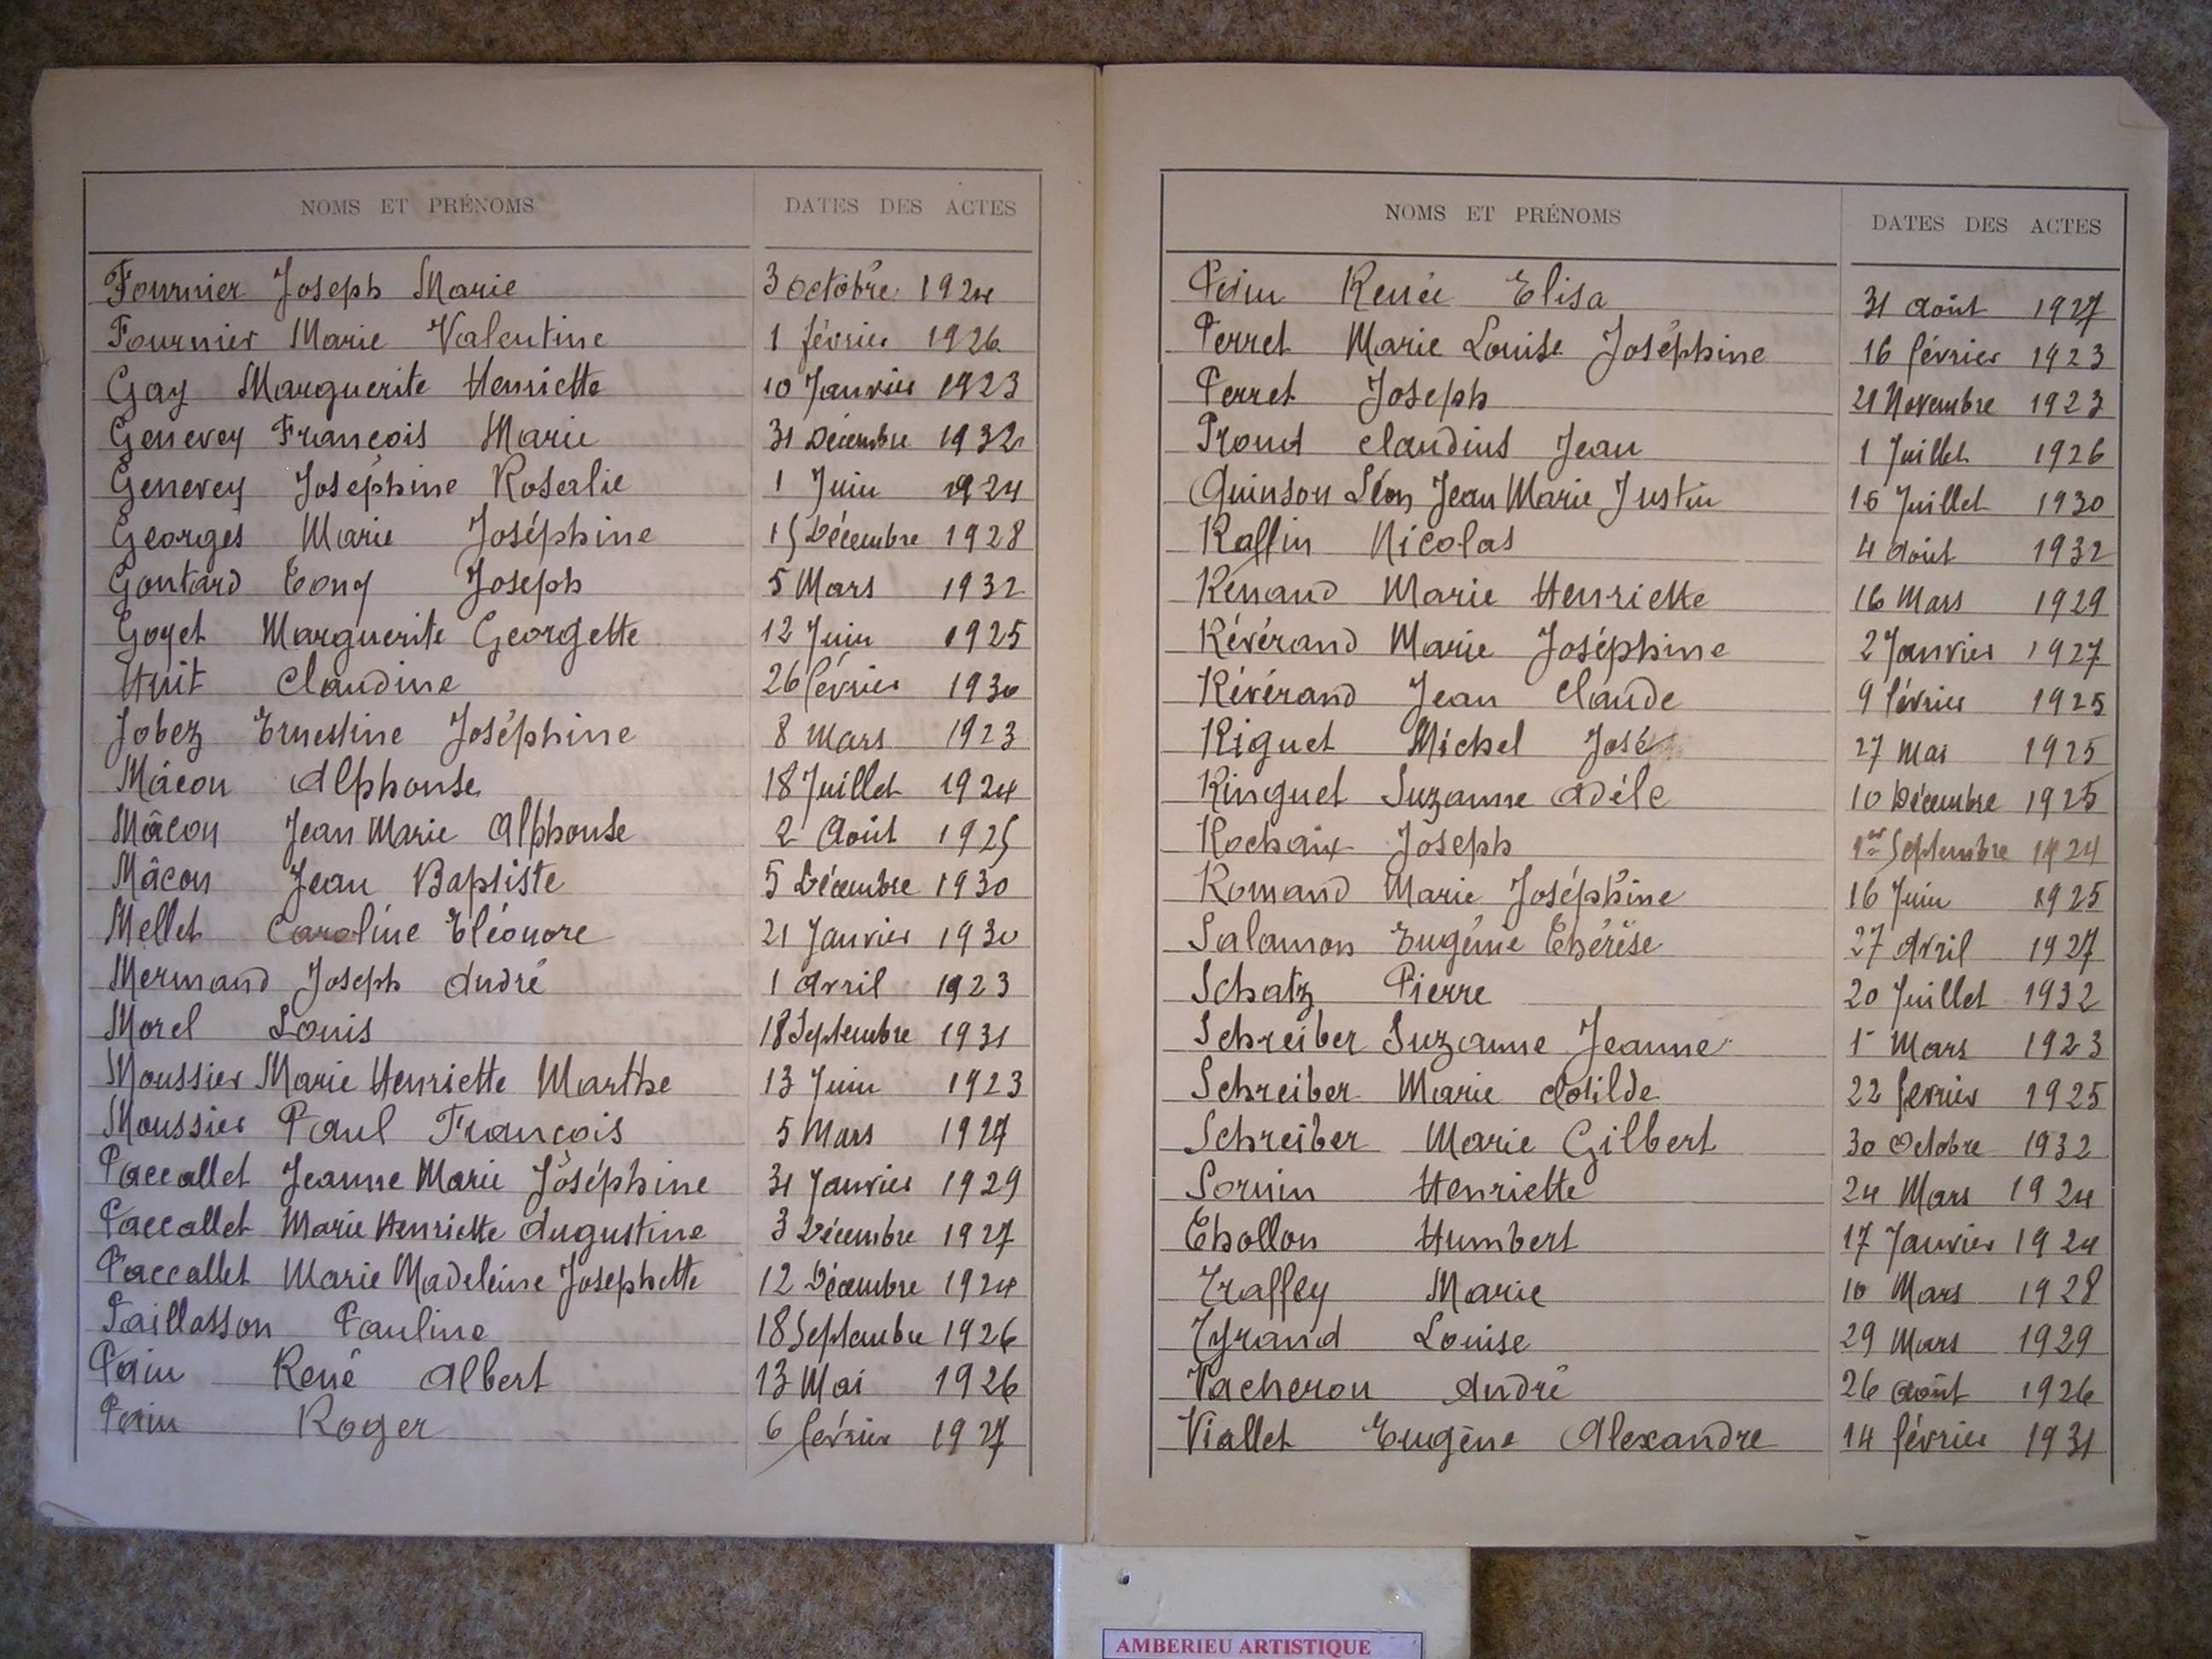 NOMS ET PRÉNOMS DATES DES ACTES
Fournier Joseph Marie 3 Octobre 1924
Fournier Marie Valentine 1 février 1926
Gay Marguerite Henriette 10 Janvier 1923
Genevey François Marie 31 Décembre 1932
Genevey Joséphine Rosalie 1 Juin 1924
Georges Marie Joséphine 15 Décembre 1928
Goutard Tony Joseph 5 Mars 1932
Goyet Marguerite Georgette 12 Juin 1925
Huit Claudine 26 février 1930
Jobez Ernestine Joséphine 8 Mars 1923
Mâcon Alphonse 18 Juillet 1924
Mâcon Jean Marie Alphonse 2 Août 1925
Mâcon Jean Baptiste 5 Décembre 1930
Mellet Caroline Eléonore 21 Janvier 1930
Mermand Joseph André 1 Avril 1923
Morel Louis 18 Septembre 1931
Moussier Marie Henriette Marthe 13 Juin 1923
Moussier Paul François 5 Mars 1927
Paccallet Jeanne Marie Joséphine 31 Janvier 1929
Paccallet Marie Henriette Augustine 3 Décembre 1927
Paccallet Marie Madeleine Josephette 12 Décembre 1924
Paillasson Pauline 18 Septembre 1926
Pain René Albert 13 Mai 1926
Pain Roger 6 février 1927
NOMS ET PRÉNOMS DATES DES ACTES
Pain Renée Elisa 31 Août 1927
Perret Marie Louise Joséphine 16 février 1923
Perret Joseph 21 Novembre 1923
Proud Claudius Jean 1 Juillet 1926
Quinson Léon Jean Marie Justin 16 Juillet 1930
Raffin Nicolas 4 Août 1932
Renand Marie Henriette 16 Mars 1929
Révérand Marie Joséphine 2 Janvier 1927
Révérand Jean Claude 9 février 1925
Riguet Michel José 27 Mai 1925
Ringuet Suzanne Adéle 10 Décembre 1925
Rochaix Joseph 1er Septembre 1924
Romand Marie Joséphine 16 Juin 1925
Salamon Eugénie Thérèse 27 Avril 1927
Schatz Pierre 20 Juillet 1932
Schreiber Suzanne Jeanne 1 Mars 1923
Schreiber Marie Clotilde 22 fevrier 1925
Schreiber Marie Gilbert 30 Octobre 1932
Sornin Henriette 24 Mars 1924
Thollon Humbert 17 Janvier 1924
Traffey Marie 10 Mars 1928
Tyrand Louise 29 Mars 1929
Vacheron André 26 Août 1926
Viallet Eugène Alexandre 14 février 1931
AMBERIEU ARTISTIQUE